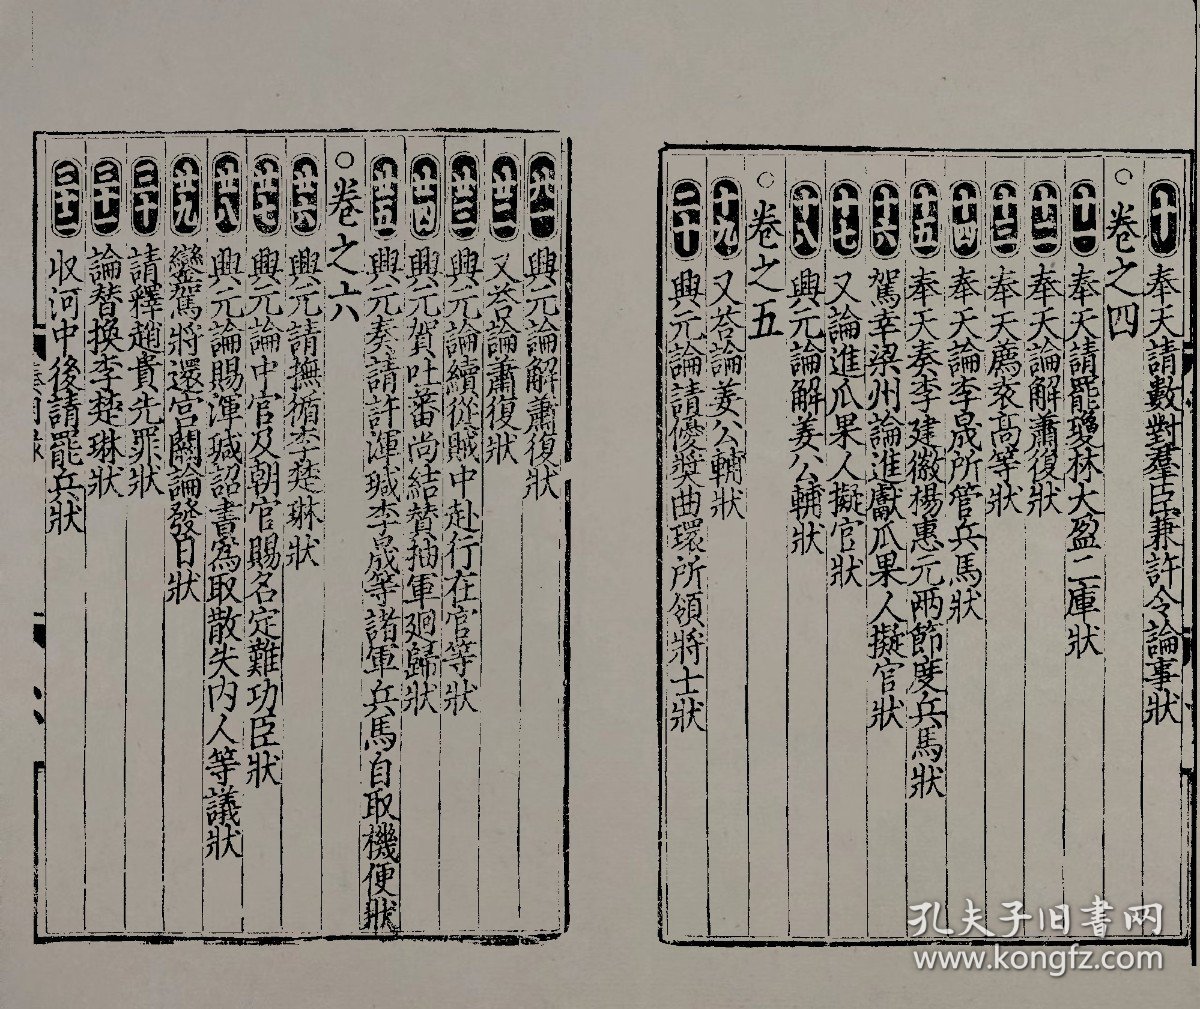 十 奉天請數對羣臣兼許令論事狀
○卷之四
十一 奉天請罷瓊林大盈二庫狀
十二 奉天論解蕭復狀
十三 奉天薦袁高等狀
十四 奉天論李晟所管兵馬狀
十五 奉天奏李建徽楊惠元兩節度兵馬狀
十六 駕幸梁州論進獻瓜果人擬官狀
十七 又論進瓜果人擬官狀
十八 興元論解姜公輔狀
○卷之五
十九 又荅論姜公輔狀
二十 興元論請優奬曲環所領將士狀
廿一 興元論解蕭復狀
廿二 又荅論蕭復狀
廿三 興元論續從賊中赴行在官等狀
廿四 興元賀吐蕃尚結贊抽軍迴歸狀
廿五 興元奏請許渾瑊李晟等諸軍兵馬自取機便狀
○卷之六
廿六 興元請撫循李楚琳狀
廿七 興元論中官及朝官賜名定難功臣狀
廿八 興元論賜渾瑊詔書爲取散失内人等議狀
廿九 鑾駕將還宮闕論發日狀
三十 請釋趙貴先罪狀
三十一 論替換李楚琳狀
三十二 収河中後請罷兵狀
孔夫子旧書网
www.kongfz.com